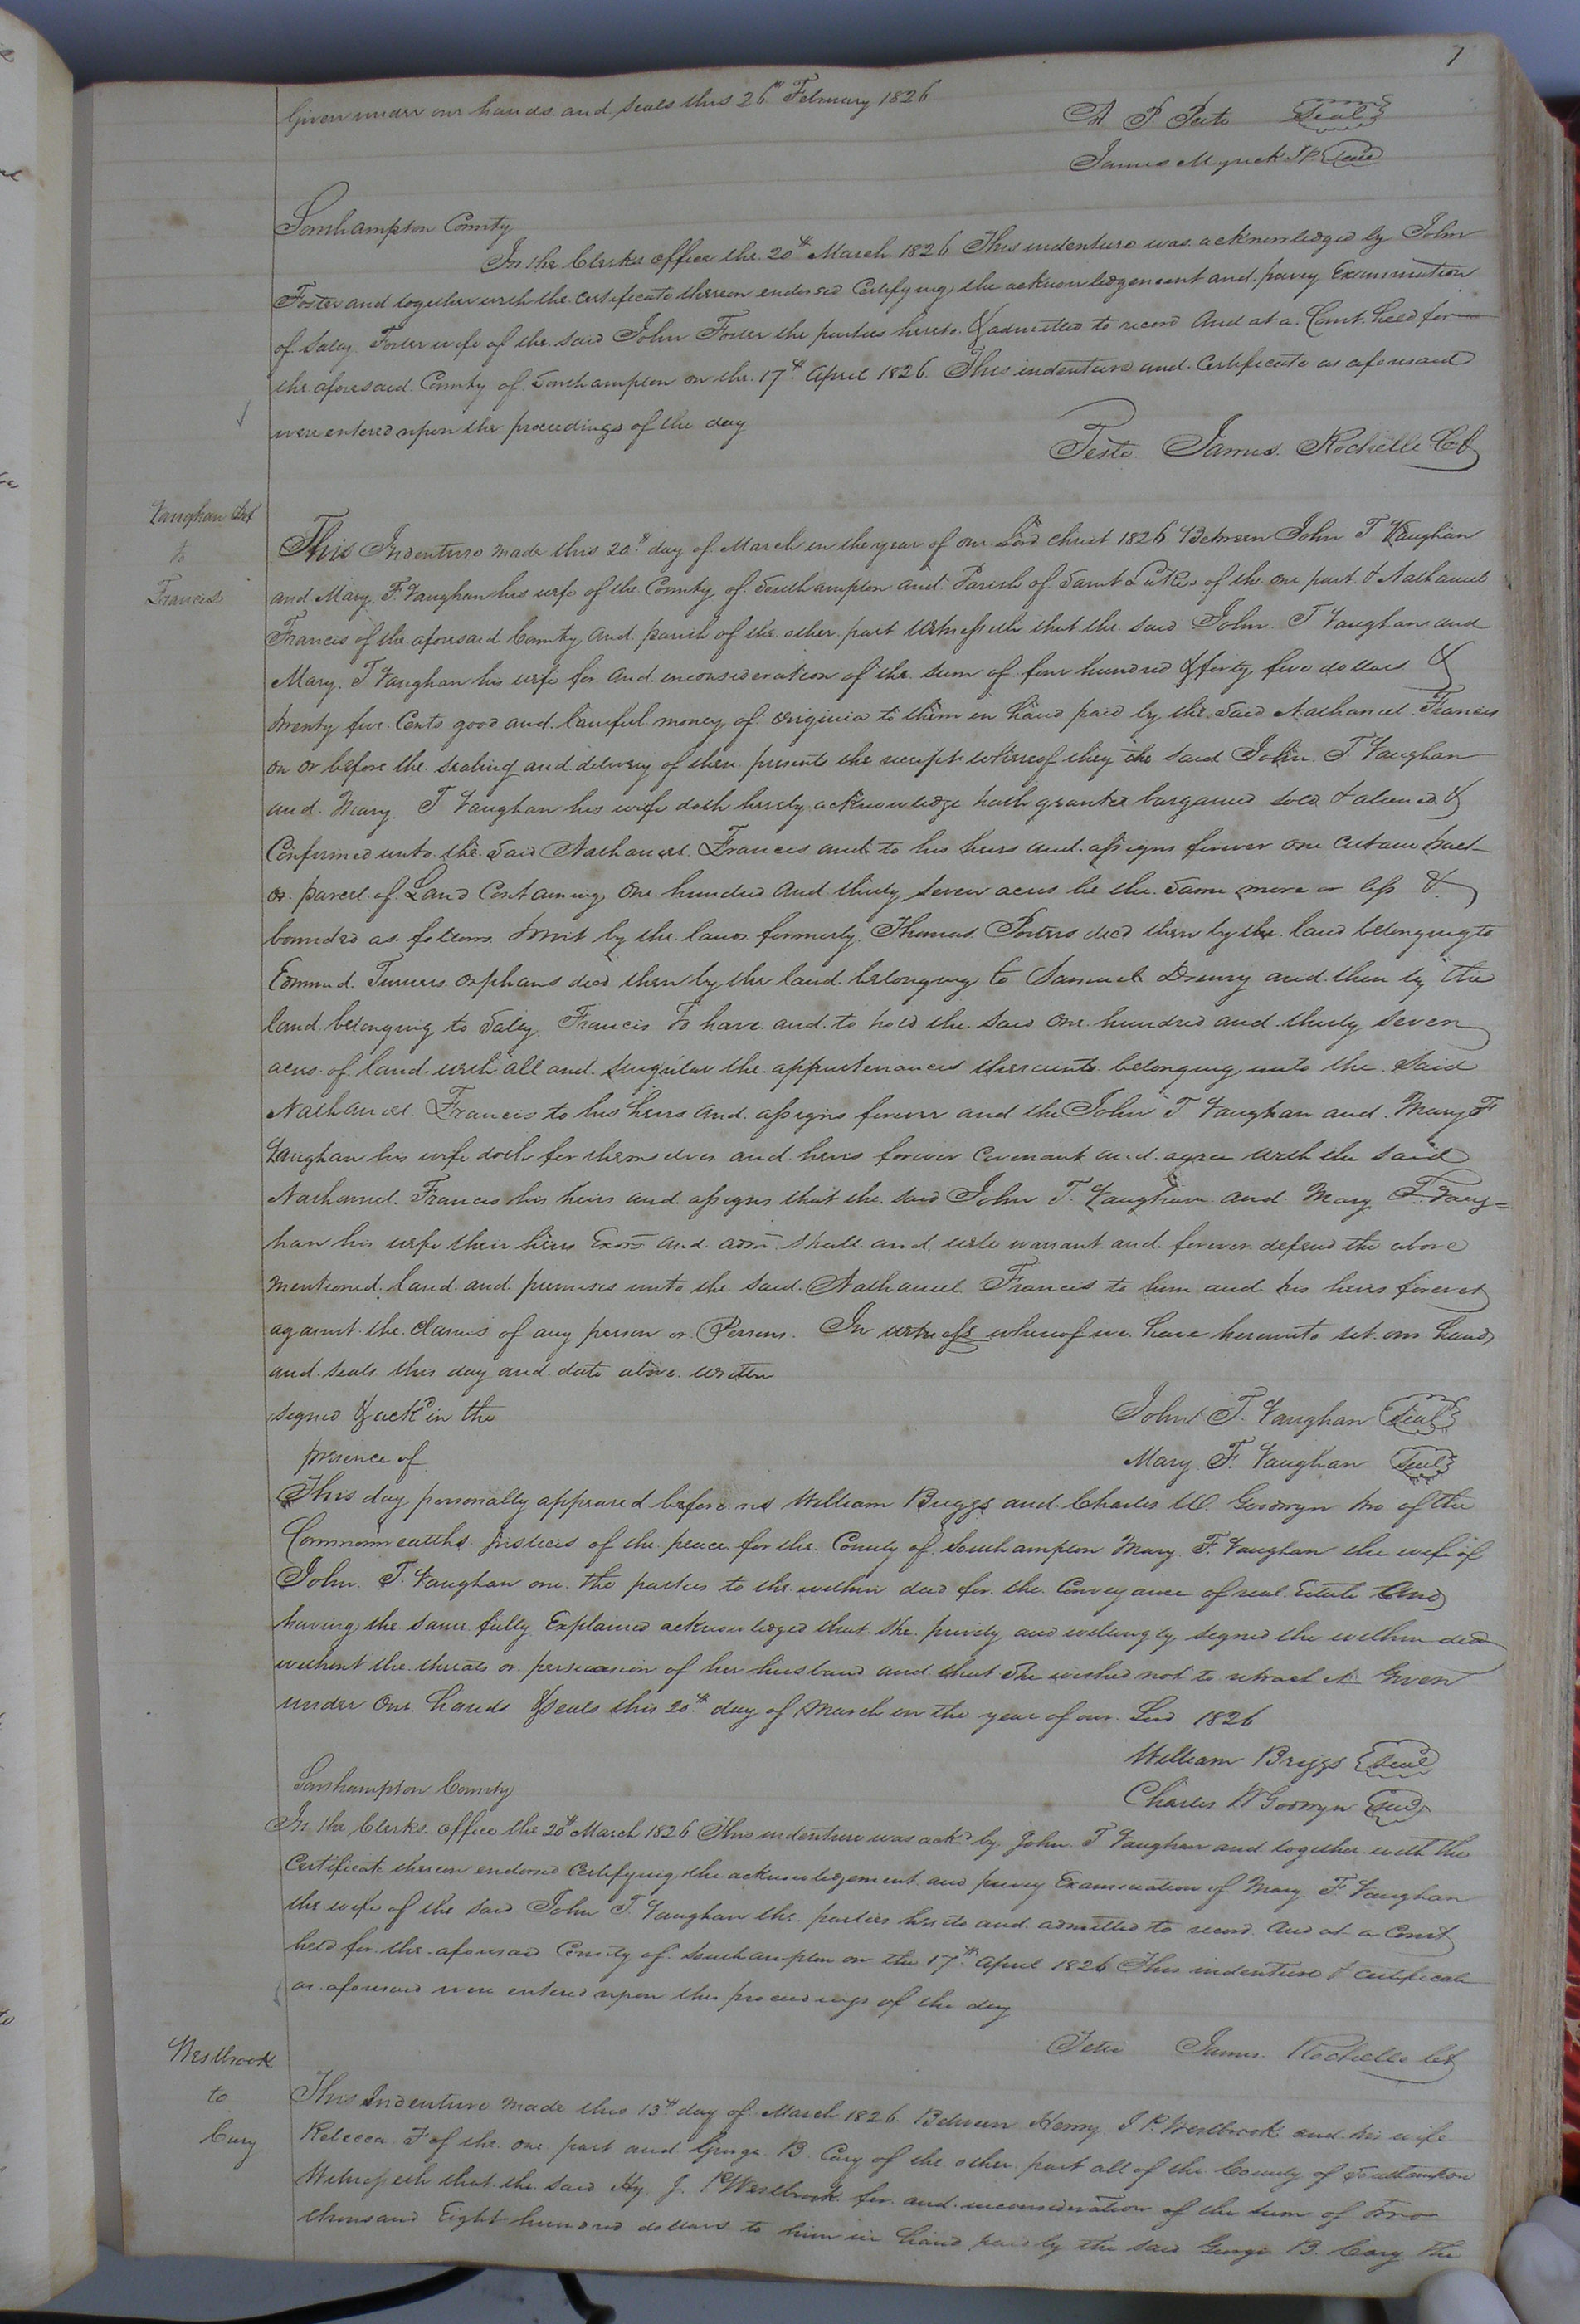 7
Given under our hands and seals this 26th February 1826
A P. Peete Seal
James Myrick JP Seal
Southampton County
In the Clerks office the 20th March 1826 This indenture was acknowledged by John
Foster and together with the certificate thereon endorsed Certifying the acknowledgement and privy Examination
of Salley Foster wife of the said John Foster the parties hereto & admitted to record And at a Court held for
the aforesaid County of Southampton on the 17th April 1826 This indenture and Certificate as aforesaid
were entered upon the proceedings of the day
Teste James Rochelle Ck
Vaughan &ux
to
Francis
This Indenture made this 20th day of March in the year of our Lord Christ 1826 Between John T Vaughan
and Mary F. Vaughan his wife of the County of Southampton and Parish of Saint Lukes of the one part & Nathaniel
Francis of the aforesaid County and parish of the other part Witnesseth that the said John T Vaughan and
Mary T Vaughan his wife for and inconsideration of the sum of four hundred & forty five dollars &
twenty five Cents good and lawful money of virginia to them in hand paid by the said Nathaniel Francis
on or before the sealing and delivery of these presents the receipt whereof they the said John T. Vaughan
and Mary T Vaughan his wife doth hereby acknowledge hath granted bargained sold & aliened &
Confirmed unto the said Nathaniel Francis and to his heirs and assigns forever one certain tract
or parcel of Land Containing One hundred and thirty seven acres be the same more or less &
bounded as follows towit by the land formerly Thomas Porters decd then by the land belonging to
Edmund Turners orphans decd then by the land belonging to Samuel Drewry and then by the
land belonging to Salley Francis To have and to hold the said one hundred and thirty seven
acres of land with all and singular the appurtenances thereunto belonging unto the said
Nathaniel Francis to his heirs and assigns forever and the John T Vaughan and Mary F
Vaughan his wife doth for themselves and heirs forever covenant and agree with the said
Nathaniel Francis his heirs and assigns that the said John T. Vaughan and Mary F. Vaug=
han his wife their heirs Exors and adm shall and will warrant and forever defend the above
mentioned land and premises unto the said Nathaniel Francis to him and his heirs forever
against the Claims of any person or Persons. In witness whereof we have hereunto set our hands
and seals this day and date above written
signed & ackd in the
presence of
John T. Vaughan Seal
Mary F. Vaughan Seal
This day personally appeared before us William Briggs and Charles W. Goodwyn two of the
Commonwealths justices of the peace for the County of Southampton Mary F. Vaughan the wife of
John T. Vaughan one the parties to the within deed for the Conveyance of real Estate And
having the same fully Explained acknowledged that she privily and willingly signed the within deed
without the threats or persuasion of her husband and that she wished not to retract it Given
under Our hands & seals this 20th day of March in the year of our Lord 1826
William Briggs Seal
Charles W Goodwyn Seal
Southampton County
In the Clerks office the 20th March 1826 This indenture was ackd by John T Vaughan and together with the
Certificate thereon endorsed Certifying the acknowledgement and privy Examination of Mary F Vaughan
the wife of the said John T. Vaughan the parties hereto and admitted to record And at a Court
held for the aforesaid County of Southampton on the 17th April 1826 This indenture & certificate
as aforesaid were entered upon the proceedings of the day
Teste James Rochelle Ck
Westbrook
to
Cary
This Indenture made this 13th day of March 1826 Between Henry J P. Westbrook and his wife
Rebecca F of the one part and George B Cary of the other part all of the County of Southampton
Witnesseth that the said Hy. J. P Westbrook for and inconsideration of the sum of two
thousand Eight hundred dollars to him in hand paid by the said George B. Cary the